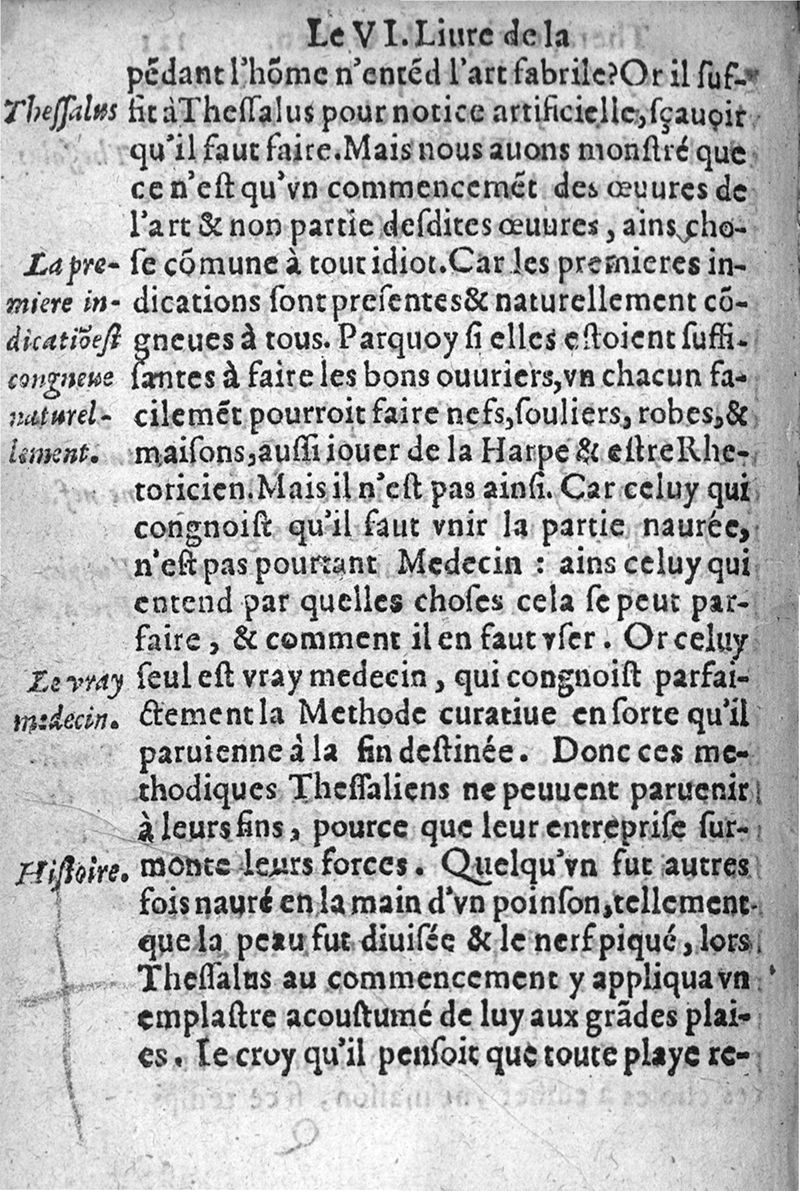 Le VI. Liure de la
pẽdant l'hõme n'entẽd l'art fabrile? Or il ſuf-
Theſſalus
fit à Theſſalus pour notice artificielle, ſçauoir
qu'il faut faire. Mais nous auons monſtré que
ce n'eſt qu'vn commencemẽt des œuures de
l'art & non partie deſdites œuures, ains cho-
La pre-
ſe cõmune à tout idiot. Car les premieres in-
miere in-
dications ſont preſentes & naturellement cõ-
dicatiõ eſt
gneues à tous. Parquoy ſi elles eſtoient ſuffi-
congneue
ſantes à faire les bons ouuriers, vn chacun fa-
naturel-
cilemẽt pourroit faire nefs, ſouliers, robes, &
lement.
maiſons, auſſi iouer de la Harpe & eſtre Rhe-
toricien. Mais il n'eſt pas ainſi. Car celuy qui
congnoiſt qu'il faut vnir la partie naurée,
n'eſt pas pourtant Medecin : ains celuy qui
entend par quelles choſes cela ſe peut par-
faire, & comment il en faut vſer. Or celuy
Le vray
ſeul eſt vray medecin, qui congnoiſt parfai-
medecin.
ctement la Methode curatiue en ſorte qu'il
paruienne à la fin deſtinée. Donc ces me-
thodiques Theſſaliens ne peuuent paruenir
à leurs fins, pource que leur entrepriſe ſur-
Hiſtoire.
monte leurs forces. Quelqu'vn fut autres
fois nauré en la main d'vn poinſon, tellement
que la peau fut diuiſée & le nerf piqué, lors
Theſſalus au commencement y appliqua vn
emplaſtre acouſtumé de luy aux grãdes plai-
es. Ie croy qu'il penſoit que toute playe re-